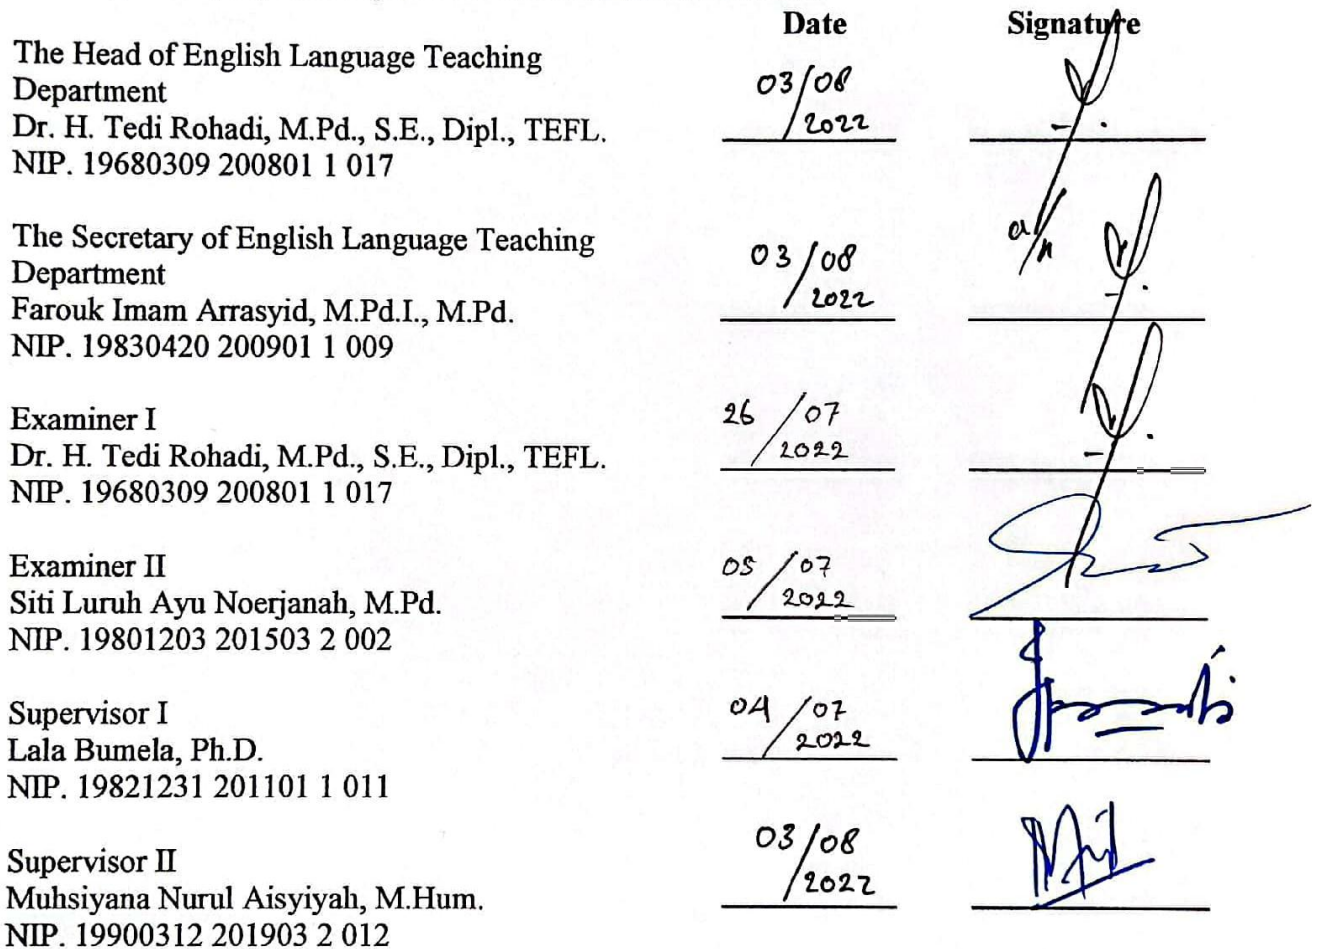 Date Signature
The Head of English Language Teaching
Department
Dr. H. Tedi Rohadi, M.Pd., S.E., Dipl., TEFL.
NIP. 19680309 200801 1 017
03/08
2022
The Secretary of English Language Teaching
Department
Farouk Imam Arrasyid, M.Pd.I., M.Pd.
NIP. 19830420 200901 1 009
03/08
2022
a/n
Examiner I
Dr. H. Tedi Rohadi, M.Pd., S.E., Dipl., TEFL.
NIP. 19680309 200801 1 017
26/07
2022
Examiner II
Siti Luruh Ayu Noerjanah, M.Pd.
NIP. 19801203 201503 2 002
05/07
2022
Supervisor I
Lala Bumela, Ph.D.
NIP. 19821231 201101 1 011
04/07
2022
Supervisor II
Muhsiyana Nurul Aisyiyah, M.Hum.
NIP. 19900312 201903 2 012
03/08
2022